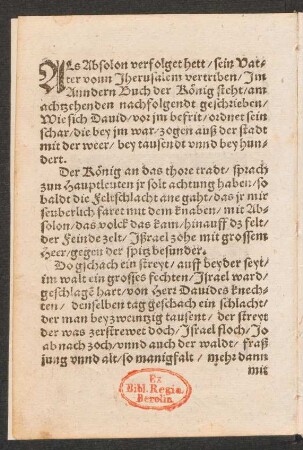 ALs Absolon verfolget hett / sein Vat-
ter vonn Jherusalem vertriben / Jm
Anndern Buch der König steht / am
achtzehenden nachfolgendt geschrieben /
Wie sich Dauid / vor jm befrit / ordnet sein
schar / die bey jm war / zogen auß der stadt
mit der weer / bey tausendt vnnd bey hun-
dert.
Der König an das thore tradt / sprach
zun Hauptleuten jr solt achtung haben / so
baldt die Feltschlacht ane gaht / das jr mir
seuberlich faret mit dem knaben / mit Ab-
solon / das volck das kam / hinauff dz felt /
der Feinde zelt / Jsrael zohe mit grossem
Heer / gegen der spitz besunder.
Do gschach ein streyt / auff beyder seyt /
im walt ein grosses fechten / Jsrael ward /
geschlagē hart / von Herr Dauides knech-
ten / denselben tag geschach ein schlacht /
der man bey zweintzig tausent / der streyt
der was zerstrewet doch / Jsrael floch / Jo
ab nach zoch / vnnd auch der waldt / fraß
jung vnnd alt / so manigfalt / mehr dann
mit
Ex
Bibl. Regia
Berolin.